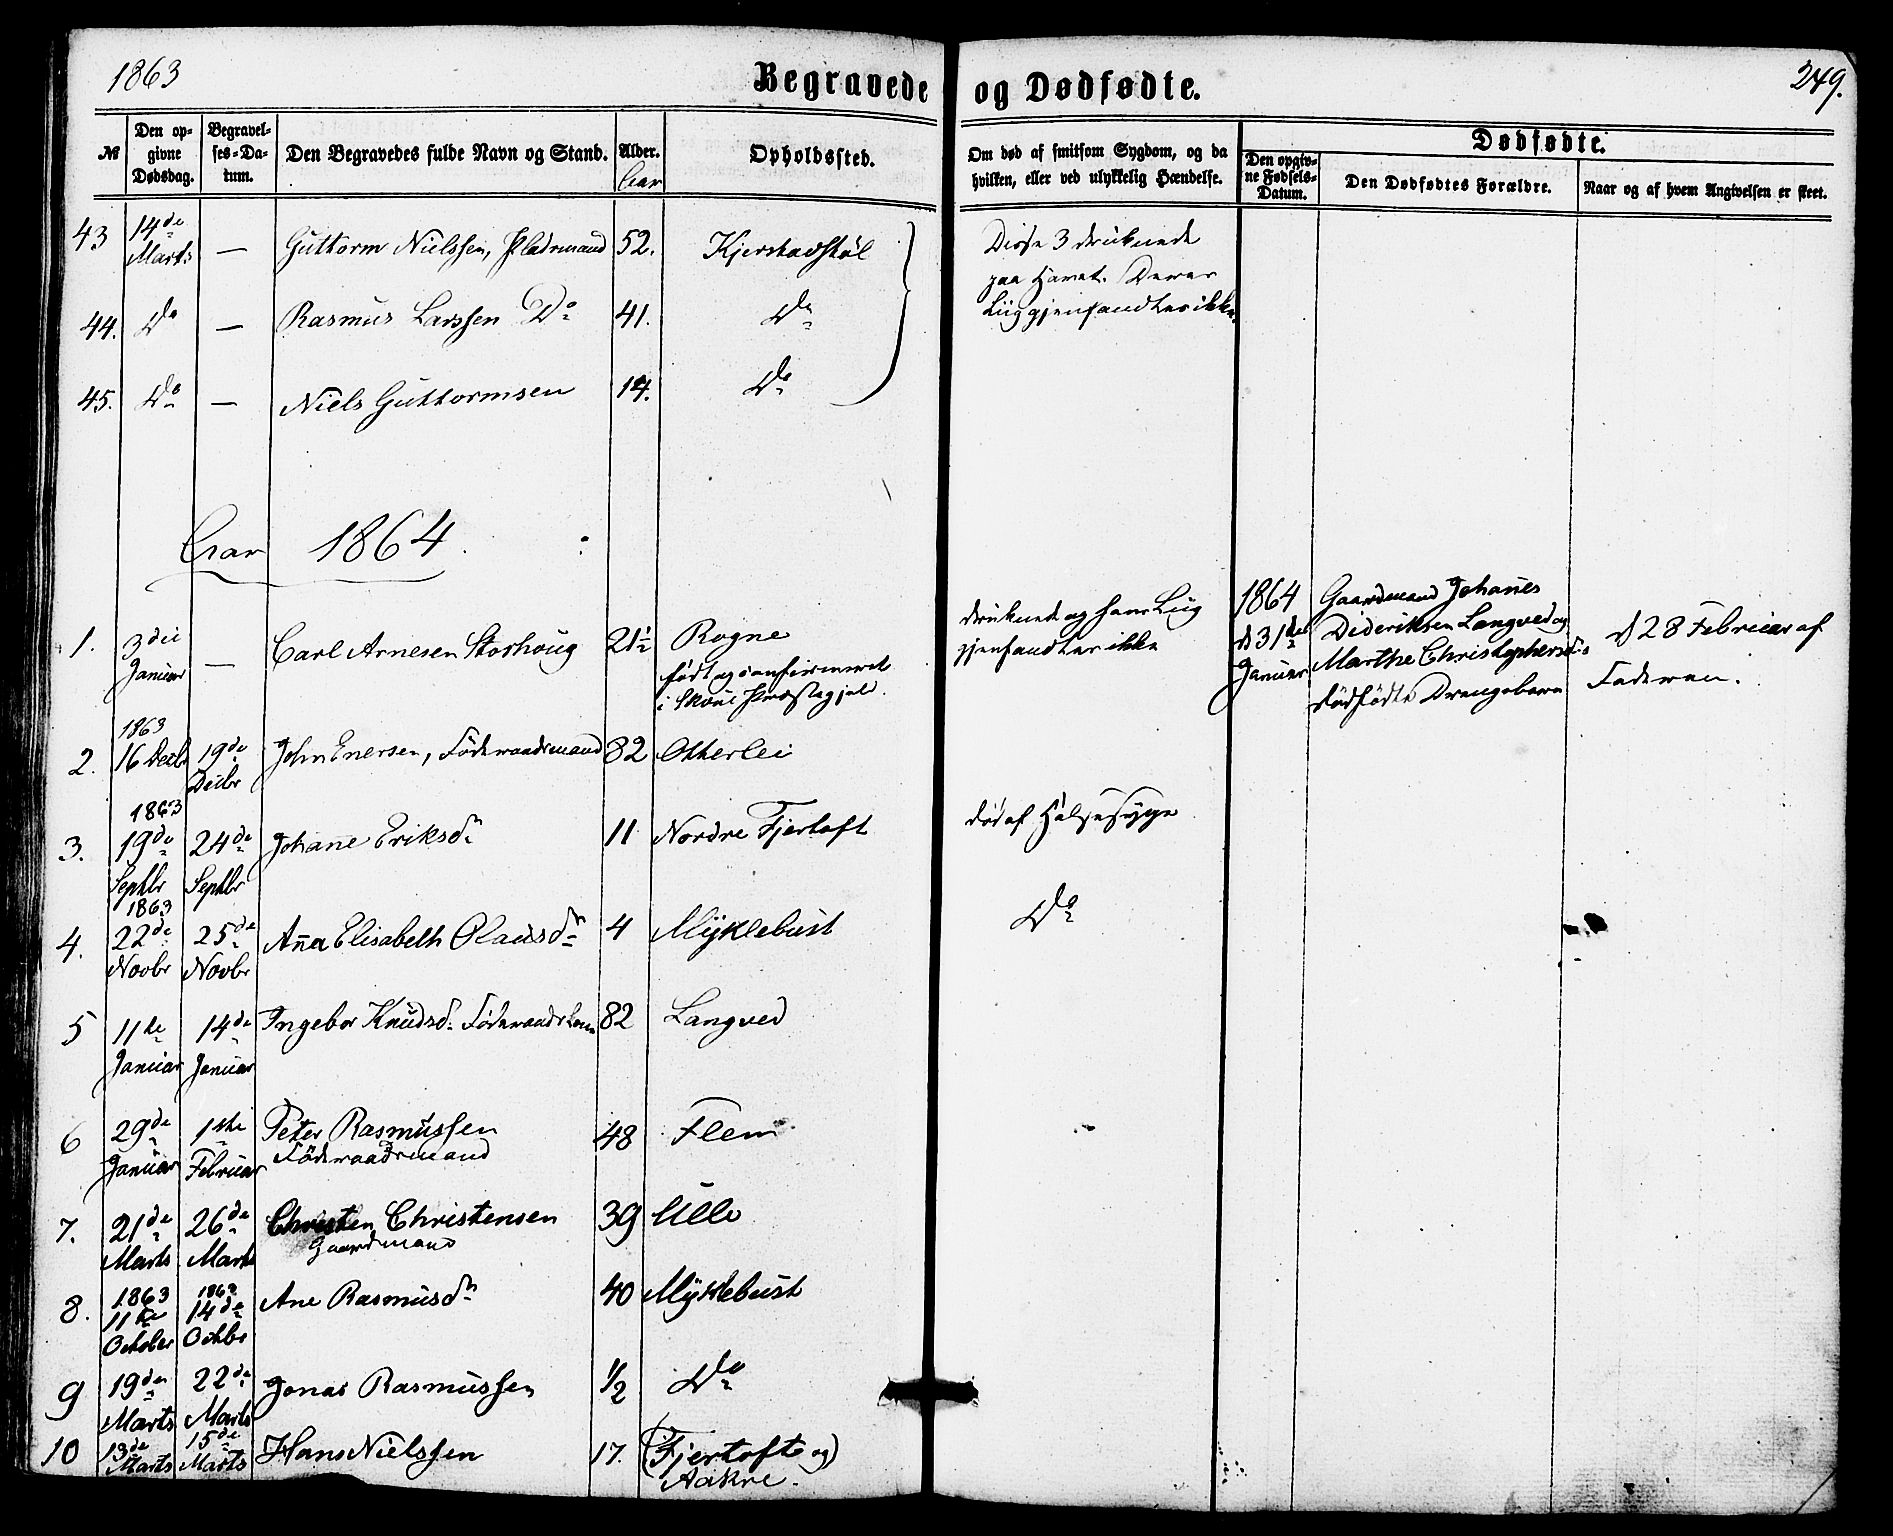 1863
Begravede og Dødfødte.
249.
№
Den op-
givne
Dødsdag.
Begravel-
ses-Da-
tum.
Den Begravedes fulde Navn og Stand.
Alder.
Aar
Opholdssted.
Om død af smitsom Sygdom, og da
hvilken, eller ved ulykkelig Hændelse.
Dødfødte.
Den opgiv-
ne Fødsels-
Datum.
Den Dødfødtes Forældre.
Naar og af hvem Angivelsen er skeet.
43 14de Marts — Guttorm Nielssen, Pladsmand 52. Kjerstadstøl
Disse 3 druknede
paa Havet. Deres
Liig gjenfandtes ikke.
44. Do — Rasmus Larssen Do 41. Do
45. Do — Niels Guttormsen 14. Do
Aar 1864.
1. 3die Januar — Carl Arnesen Storhoug 21½ Rogne
født og confirmeret
i Skoue Præstegjeld.
druknet og hans Liig
gjenfandtes ikke
1864
d 31te
Januar
Gaardmand Johanes
Dideriksen Langved og
Marthe Christophersd:s
dødfødte Drengebarn
d 28 Februar af
Faderen.
2. 1863 16 Decbr 19de Decbr John Enersen, Føderaadsmand 82 Otterlei
3. 1863 19de Septbr 24de Septbr Johane Eriksdr 11 Nordre Fjertoft død af Halsesyge
4. 1863 22de Novbr 25de Novbr Anna Elisabeth Olausdr 4 Myklebust Do
5 11te Januar 14de Januar Ingebor Knudsd. Føderaadskone 82 Langved
6 29de Januar 1ste Februar Peter Rasmussen
Føderaadsmand 48 Flem
7. 21de Marts 26de Marts Christen Christensen
Gaardmand 39 Ulle
8. 1863 11te October 1863 14de Octbr Ane Rasmusdr 40 Myklebust
9 19de Marts 22de Marts Jonas Rasmussen ½ Do
10 13de Marts 15de Marts Hans Nielssen 17. (Fjertoft og)
Aakre.